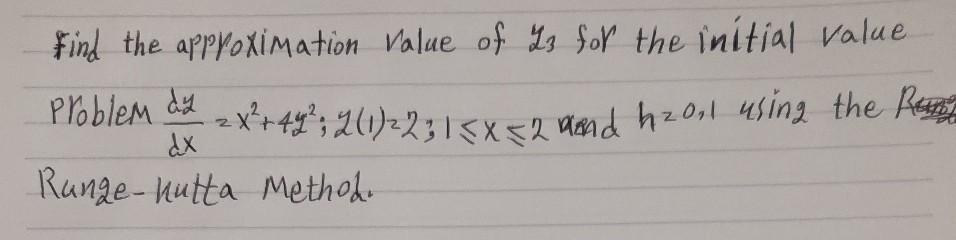 Find the approximation value of y₃ for the initial value
problem dy/dx = x²+4y²; y(1)=2; 1≤x≤2 and h=0,1 using the
Runge-kutta Method.